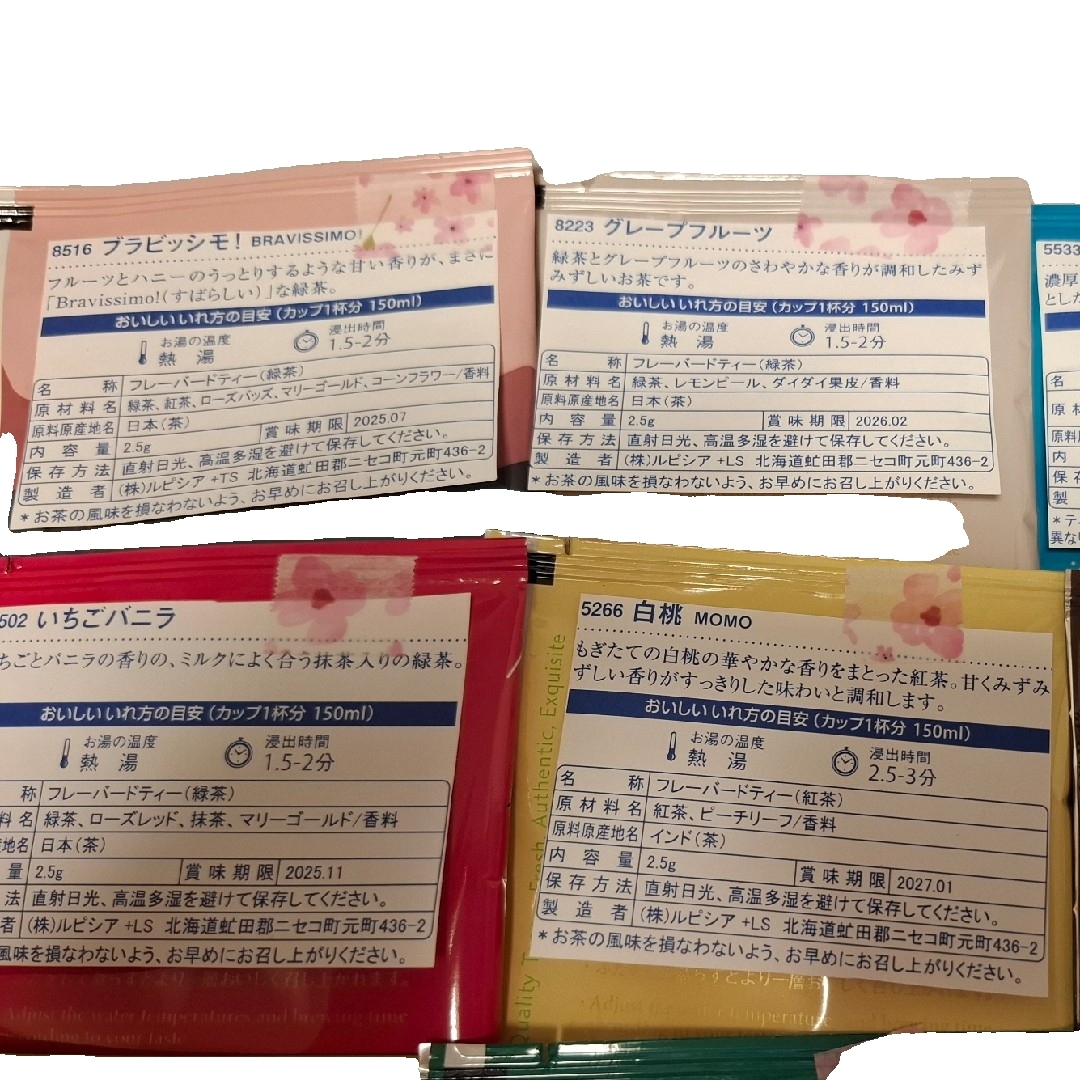 8516 ブラビッシモ! BRAVISSIMO!
フルーツとハニーのうっとりするような甘い香りが、まさに
「Bravissimo!(すばらしい)」な緑茶。
おいしいいれ方の目安(カップ1杯分 150ml)
お湯の温度 熱湯 浸出時間 1.5-2分
名称 フレーバードティー(緑茶)
原材料名 緑茶、紅茶、ローズバッズ、マリーゴールド、コーンフラワー/香料
原料原産地名 日本(茶)
内容量 2.5g 賞味期限 2025.07
保存方法 直射日光、高温多湿を避けて保存してください。
製造者 (株)ルピシア +TS 北海道虻田郡ニセコ町元町436-2
*お茶の風味を損なわないよう、お早めにお召し上がりください。
8223 グレープフルーツ
緑茶とグレープフルーツのさわやかな香りが調和したみず
みずしいお茶です。
おいしいいれ方の目安(カップ1杯分 150ml)
お湯の温度 熱湯 浸出時間 1.5-2分
名称 フレーバードティー(緑茶)
原材料名 緑茶、レモンピール、ダイダイ果皮/香料
原料原産地名 日本(茶)
内容量 2.5g 賞味期限 2026.02
保存方法 直射日光、高温多湿を避けて保存してください。
製造者 (株)ルピシア +LS 北海道虻田郡ニセコ町元町436-2
*お茶の風味を損なわないよう、お早めにお召し上がりください。
5533
濃厚
とした
名
原材
原料
内
保存
製
*テ
異な
502 いちごバニラ
ちごとバニラの香りの、ミルクによく合う抹茶入りの緑茶。
おいしいいれ方の目安(カップ1杯分 150ml)
お湯の温度 熱湯 浸出時間 1.5-2分
称 フレーバードティー(緑茶)
料名 緑茶、ローズレッド、抹茶、マリーゴールド/香料
地名 日本(茶)
量 2.5g 賞味期限 2025.11
法 直射日光、高温多湿を避けて保存してください。
者 (株)ルピシア +LS 北海道虻田郡ニセコ町元町436-2
風味を損なわないよう、お早めにお召し上がりください。
Adjust the water temperatures and brewing time
according to your taste
5266 白桃 MOMO
もぎたての白桃の華やかな香りをまとった紅茶。甘くみずみ
ずしい香りがすっきりした味わいと調和します。
おいしいいれ方の目安(カップ1杯分 150ml)
お湯の温度 熱湯 浸出時間 2.5-3分
名称 フレーバードティー(紅茶)
原材料名 紅茶、ピーチリーフ/香料
原料原産地名 インド(茶)
内容量 2.5g 賞味期限 2027.01
保存方法 直射日光、高温多湿を避けて保存してください。
製造者 (株)ルピシア +LS 北海道虻田郡ニセコ町元町436-2
*お茶の風味を損なわないよう、お早めにお召し上がりください。
Adjust the water temperature
Quality T Fresh, Authentic, Exquisite